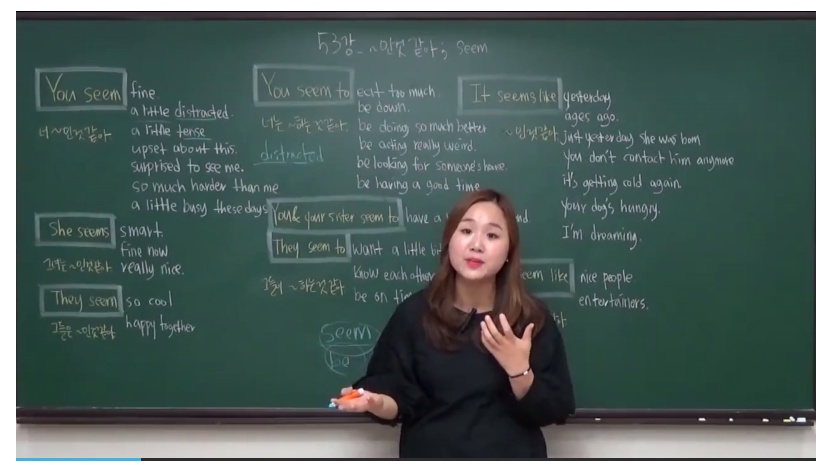 53강_ ~인것 같아; seem
You seem
fine.
a little distracted.
너 ~인것같아
a little tense
upset about this.
surprised to see me.
so much harder than me
a little busy these days
She seems
smart.
fine now
그녀는 ~인것같아
really nice.
They seem
so cool
그들은 ~인것같아
happy together
You seem to
eat too much.
be down.
너는 ~하는것같아.
be doing so much better
distracted
be acting really weird.
be looking for someone's house.
be having a good time
You& your sister seem to
have a
They seem to
want a little
know each other
그들이 ~하는것같아
be on
seem
be
It seems like
yesterday
ages ago.
~인것같아
just yesterday she was born
you don't contact him anymore
it's getting cold again.
your dog's hungry.
I'm dreaming.
seem like
nice people
entertainers.